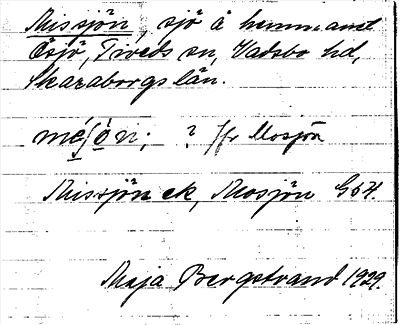 Missjön, sjö å hemmanet
Ösjö, Tiveds sn, Vadsbo hd,
Skaraborgs län.
? Jfr Mosjön
Missjön ek, Mosjön G64.
Maja Bergstrand 1929.